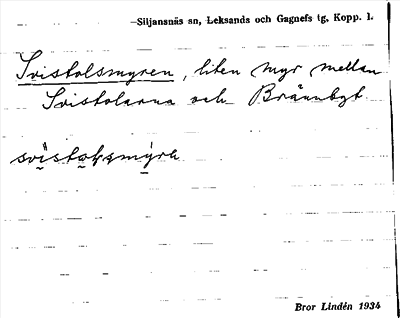 Siljansnäs sn, Leksands och Gagnefs tg, Kopp. l.
Svistolsmyren, liten myr mellan
Svistolarna och Brännbyt.
Bror Lindén 1934